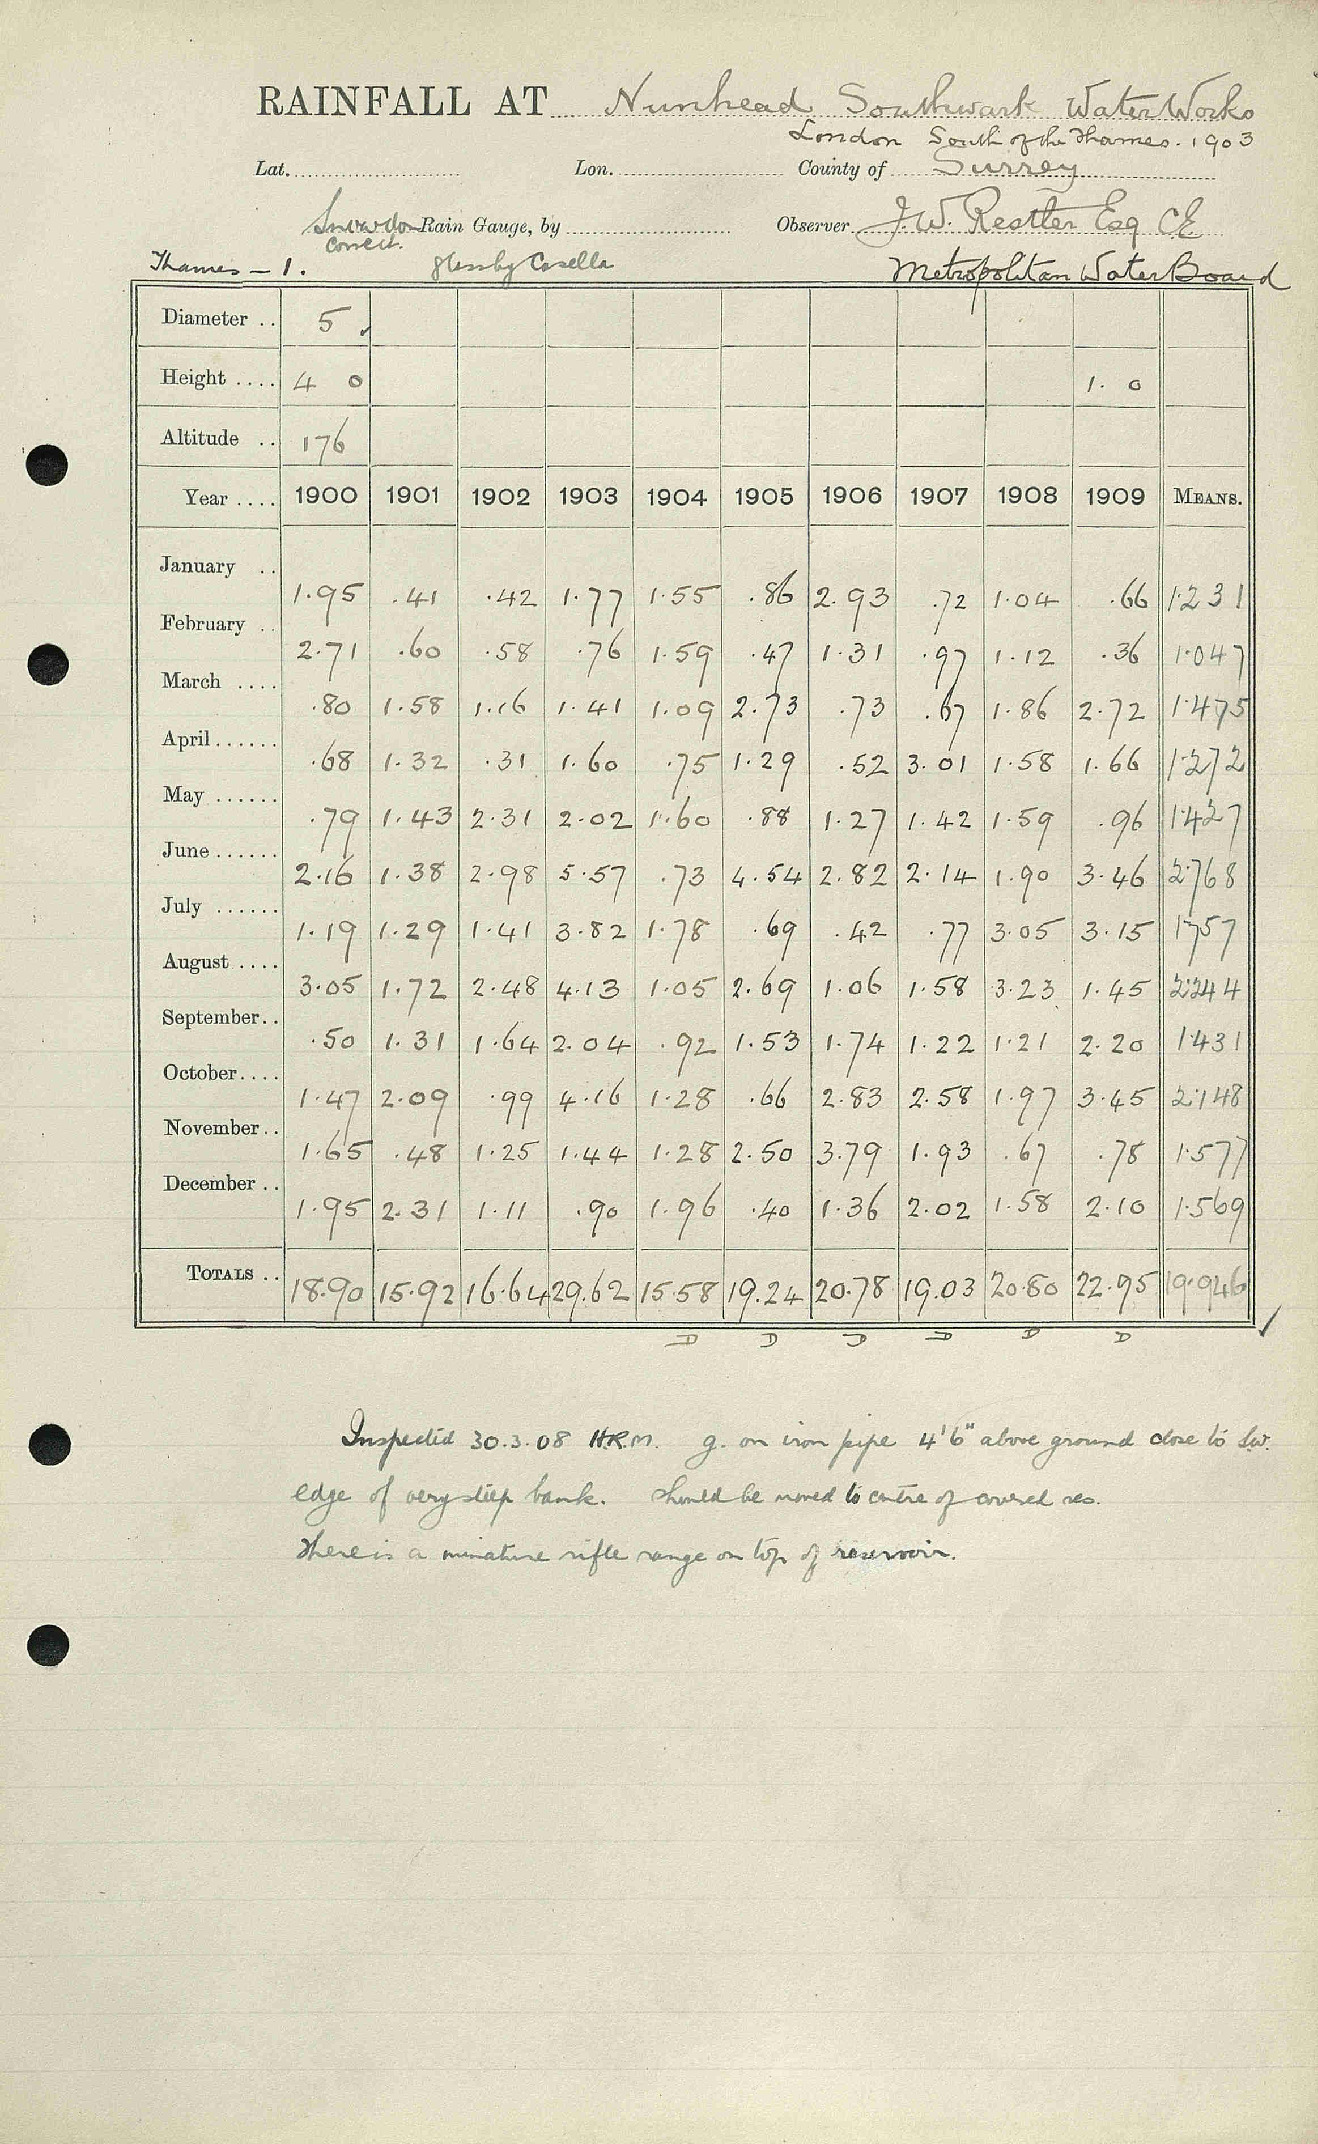 RAINFALL AT Nunhead Southwark Water Works
London South of the Thames. 1903
Lat. Lon. County of Surrey
Snowdon Rain Gauge, by Observer J.W. Restler Esq CE
correct.
Thames - 1. glass by Casella Metropolitan Water Board
Diameter .. 5
Height .... 4 0 1. 0
Altitude .. 176
Year .... 1900 1901 1902 1903 1904 1905 1906 1907 1908 1909 MEANS.
January .. 1.95 .41 .42 1.77 1.55 .86 2.93 .72 1.04 .66 1.231
February .. 2.71 .60 .58 .76 1.59 .47 1.31 .97 1.12 .36 1.047
March .... .80 1.58 1.16 1.41 1.09 2.73 .73 .67 1.86 2.72 1.475
April...... .68 1.32 .31 1.60 .75 1.29 .52 3.01 1.58 1.66 1.272
May ...... .79 1.43 2.31 2.02 1.60 .88 1.27 1.42 1.59 .96 1.427
June...... 2.16 1.38 2.98 5.57 .73 4.54 2.82 2.14 1.90 3.46 2.768
July ...... 1.19 1.29 1.41 3.82 1.78 .69 .42 .77 3.05 3.15 1757
August .... 3.05 1.72 2.48 4.13 1.05 2.69 1.06 1.58 3.23 1.45 2.244
September.. .50 1.31 1.64 2.04 .92 1.53 1.74 1.22 1.21 2.20 1.431
October.... 1.47 2.09 .99 4.16 1.28 .66 2.83 2.58 1.97 3.45 2.148
November.. 1.65 .48 1.25 1.44 1.28 2.50 3.79 1.93 .67 .78 1.577
December .. 1.95 2.31 1.11 .90 1.96 .40 1.36 2.02 1.58 2.10 1.569
TOTALS .. 18.90 15.92 16.64 29.62 15.58 19.24 20.78 19.03 20.80 22.95 19.946
D D D D D D
Inspected 30.3.08 H.R.M. g. on iron pipe 4'6" above ground close to S.W.
edge of very steep bank. Should be moved to centre of covered res.
There is a miniature rifle range on top of reservoir.